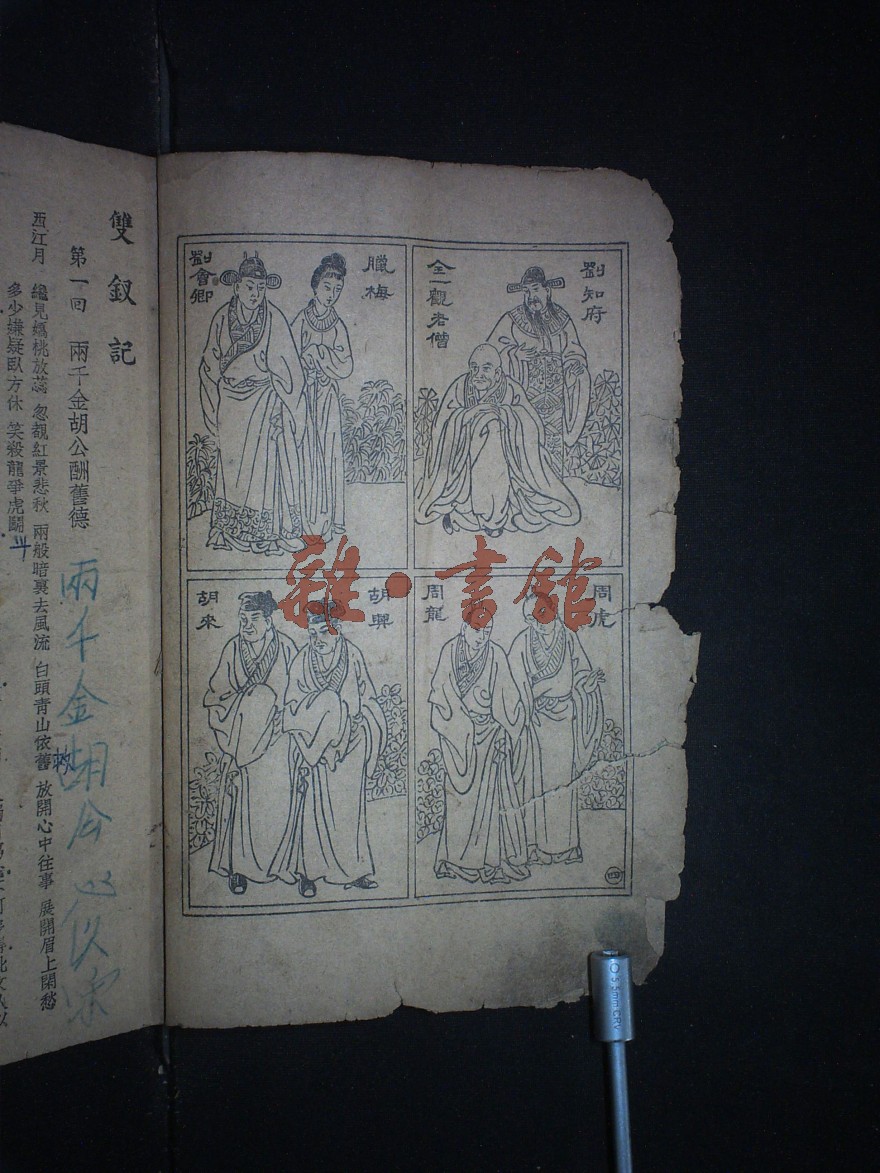 劉知府
仝一觀老僧
臘梅
劉會卿
周虎
周龍
胡興
胡來
四
雜·書館
雙釵記
第一回 兩千金胡公酬舊德
西江月 纔見嬌桃放蕊 忽覩紅景悲秋 兩般暗裏去風流 白頭青山依舊 放開心中往事 展開眉上閑愁
多少嫌疑臥方休 笑殺龍爭虎鬭
兩千金胡公
5.5mm